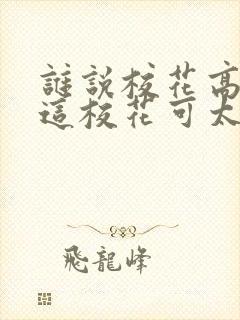 誰說校花高
這校花可太
飛龍峰